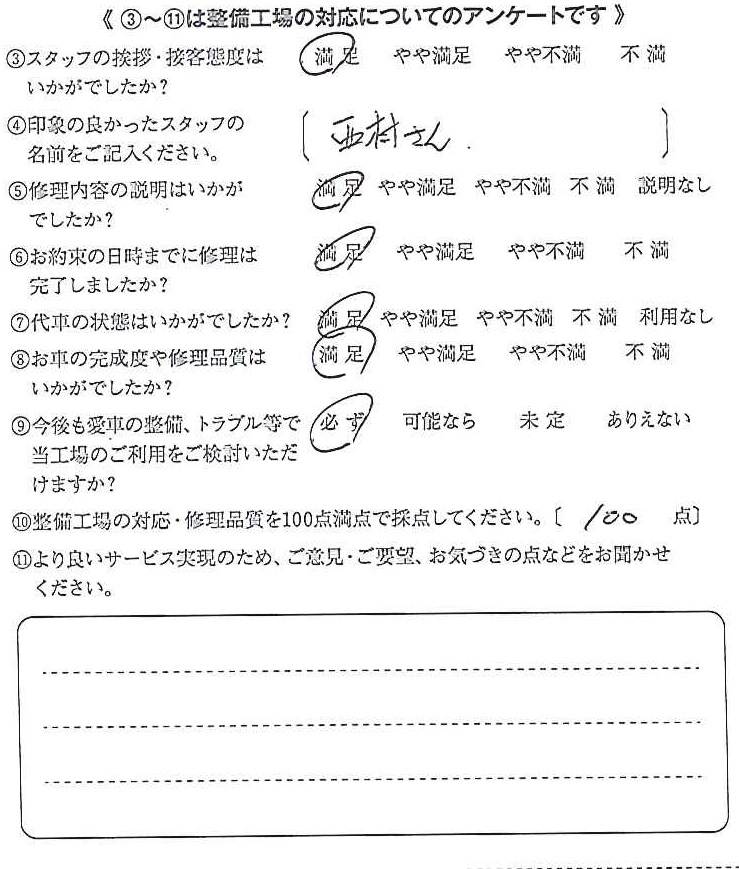 《 ③～⑪は整備工場の対応についてのアンケートです 》
③スタッフの挨拶・接客態度は 満足 やや満足 やや不満 不満
いかがでしたか？
④印象の良かったスタッフの
名前をご記入ください。 〔 西村さん. 〕
⑤修理内容の説明はいかが 満足 やや満足 やや不満 不満 説明なし
でしたか？
⑥お約束の日時までに修理は 満足 やや満足 やや不満 不満
完了しましたか？
⑦代車の状態はいかがでしたか？ 満足 やや満足 やや不満 不満 利用なし
⑧お車の完成度や修理品質は 満足 やや満足 やや不満 不満
いかがでしたか？
⑨今後も愛車の整備、トラブル等で 必ず 可能なら 未定 ありえない
当工場のご利用をご検討いただ
けますか？
⑩整備工場の対応・修理品質を100点満点で採点してください。〔 100 点〕
⑪より良いサービス実現のため、ご意見・ご要望、お気づきの点などをお聞かせ
ください。